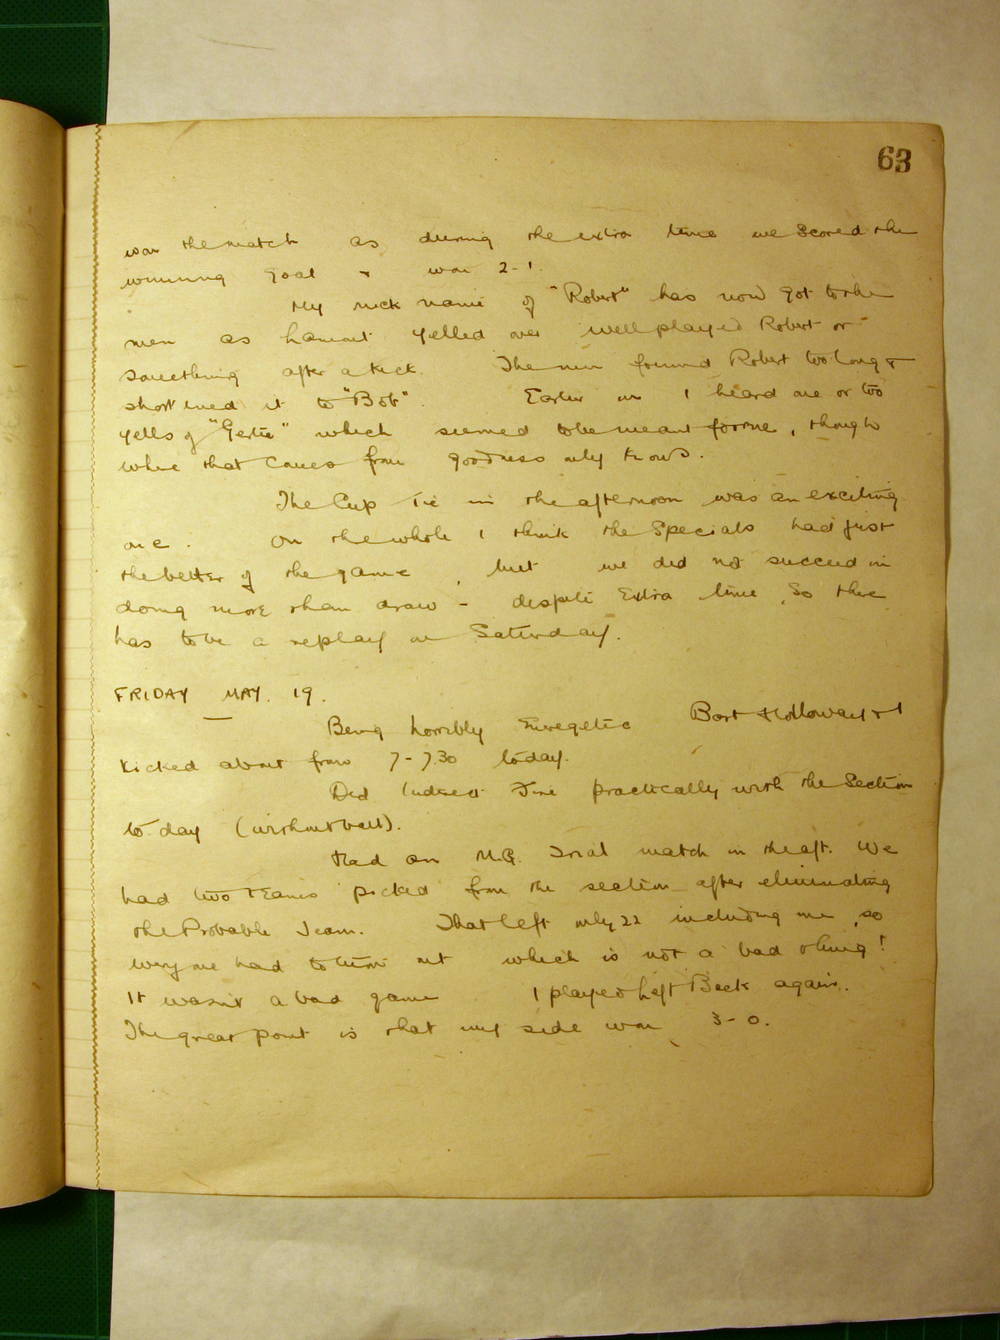 63
won the match as during the extra time we scored the
winning goal & won 2-1.
My nick name of "Robert" has now got to the
men as Lamont yelled over well played Robert or
something after a kick. The men found Robert too long &
shortened it to "Bob". Earlier on I heard one or two
yells of "Gertie" which seemed to be meant for me, though
where that comes from goodness only knows.
The Cup Tie in the afternoon was an exciting
one. On the whole I think the Specials had just
the better of the game, but we did not succeed in
doing more than draw - despite Extra time. So there
has to be a replay on Saturday.
FRIDAY MAY. 19.
Being horribly Energetic Bart Holloway & I
kicked about from 7-7.30 today.
Did Indirect Fire practically with the Section
to day (without ball).
Had an M.G. Trial match in the aft. We
had two teams picked from the section after eliminating
the Probable Team. That left only 22 including me, so
every one had to turn out which is not a bad thing!
It wasn't a bad game I played Left Back again.
The great point is that my side won 3-0.